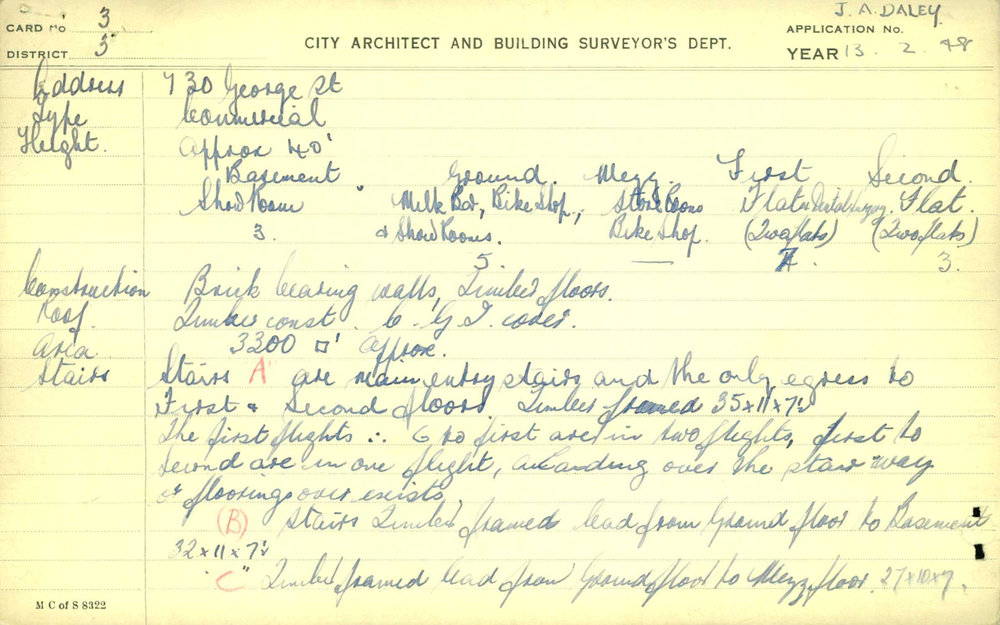 J. A. DALEY.
CARD No 3
APPLICATION No.
DISTRICT 3
CITY ARCHITECT AND BUILDING SURVEYOR'S DEPT.
YEAR 13. 2. 48
Address 730 George St
Type Commercial
Height. Approx 40'
Basement Ground. Mezz. First Second.
Show Room " Milk Bar, Bike Shop, Store Rooms Flat & Dental Surgery. Flat.
3. & Show Rooms. Bike Shop. (Two flats) (Two flats)
5 — 7. 3.
Construction Brick bearing walls, Timber floors.
Roof. Timber const. C. G. I. cover.
Area 3300 □' approx.
Stairs Stairs "A" are main entry stairs and the only egress to
First & Second floors Timber framed 35 x 11 x 7½
The first flights ∴ G to first are in two flights, first to
second are in one flight, a landing over the stair way
of floorings over exists.
(B) Stairs Timber framed lead from Ground floor to Basement
32 x 11 x 7½
"C" Timber framed lead from Ground floor to Mezz floor. 27 x 10 x 7.
M C of S 8322